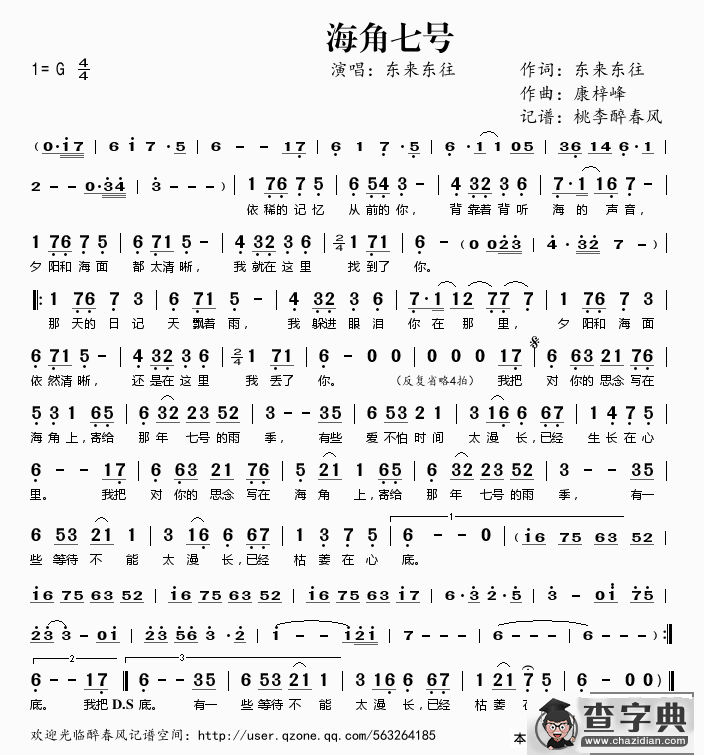 海角七号
1= G 4/4 演唱：东来东往 作词：东来东往
作曲：康梓峰
记谱：桃李醉春风
(0·i7 | 6 i 7·5 | 6 - - i7 | 6 i 7·5 | 6·1 1 05 | 36 14 6·1 |
2 - - 0·34 | 3 - - -) | 1 76 7 5 | 6 54 3 - | 4 32 3 6 | 7·1 16 7 - |
依稀的记忆 从前的你， 背靠着背听 海的声音，
1 76 7 5 | 6 71 5 - | 4 32 3 6 | 2/4 1 71 | 6 - (0 023 | 4·32 7 - |
夕阳和海面 都太清晰， 我就在这里 找到了你。
1 76 7 3 | 6 71 5 - | 4 32 3 6 | 7·1 12 77 7 | 1 76 7 3
那天的日记 天飘着雨， 我躲进眼泪 你在那里， 夕阳和海面
6 71 5 - | 4 32 3 6 | 2/4 1 71 | 6 - 0 0 | 0 0 0 17 | 6 63 21 76
依然清晰， 还是在这里 我丢了你。 （反复省略4拍） 我把 对你的思念写在
5 3 1 65 | 6 32 23 52 | 3 - - 35 | 6 53 21 1 | 3 16 6 67 | 1 4 7 5
海角上，寄给 那年七号的雨季， 有些 爱不怕时间 太漫长，已经 生长在心
6 - - 17 | 6 63 21 76 | 5 21 1 65 | 6 32 23 52 | 3 - - 35
里。 我把 对你的思念写在 海角上，寄给 那年七号的雨季， 有一
6 53 21 1 | 3 16 6 67 | 1 3 7 5 | 1 6 - - 0 | (i6 75 63 52
些等待不能 太漫长，已经 枯萎在心底。
i6 75 63 52 | i6 75 63 52 | i6 75 i7 i7 | 6·3 2·5 | 3 - - 0i 75
23 3 - 0i | 23 56 3·2 | 1 - - i21 | 7 - - - | 6 - - - | 6 - - -) :
2 3
6 - - 17 6 - - 35 | 6 53 21 1 | 3 16 6 67 | 1 3 7 5 | 6 - 0 0)
底。 我把 D.S 底。 有一 些等待不能 太漫长，已经 枯萎在
欢迎光临醉春风记谱空间：http://user.qzone.qq.com/563264185 本
查字典
www.chazidian.com